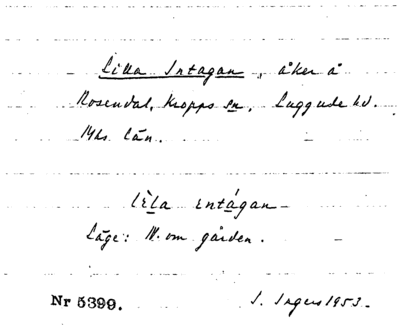 Lilla Intagan, åker å
Rosendal, Kropps sn, Luggude hd.
Mhs. län.
lìla intágan
Läge: N. om gården.
Nr 5399. I. Ingers 1953.